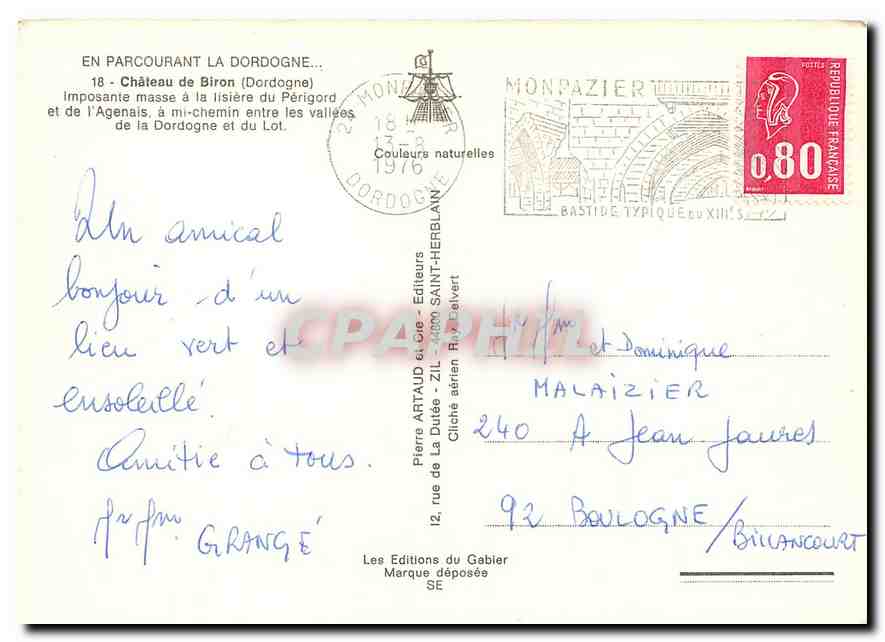 EN PARCOURANT LA DORDOGNE...
18 - Château de Biron (Dordogne)
Imposante masse à la lisière du Périgord
et de l'Agenais, à mi-chemin entre les vallées
de la Dordogne et du Lot.
Couleurs naturelles
18
13-8
1976
DORDOGNE
MONPAZIER
BASTIDE TYPIQUE DU XIIIe S
POSTES
REPUBLIQUE FRANÇAISE
0,80
Un amical
bonjour d'un
lieu vert et
ensoleillé.
Amitié à tous.
Mr Mme GRANGÉ
Pierre ARTAUD et Cie - Editeurs
12, rue de La Dutée - ZIL - 44800 SAINT-HERBLAIN
Cliché aérien Ray Delvert
CPAPHIL
Mr Mme et Dominique
MALAIZIER
240 A Jean Jaures
92 BOULOGNE
/BILLANCOURT
Les Editions du Gabier
Marque déposée
SE